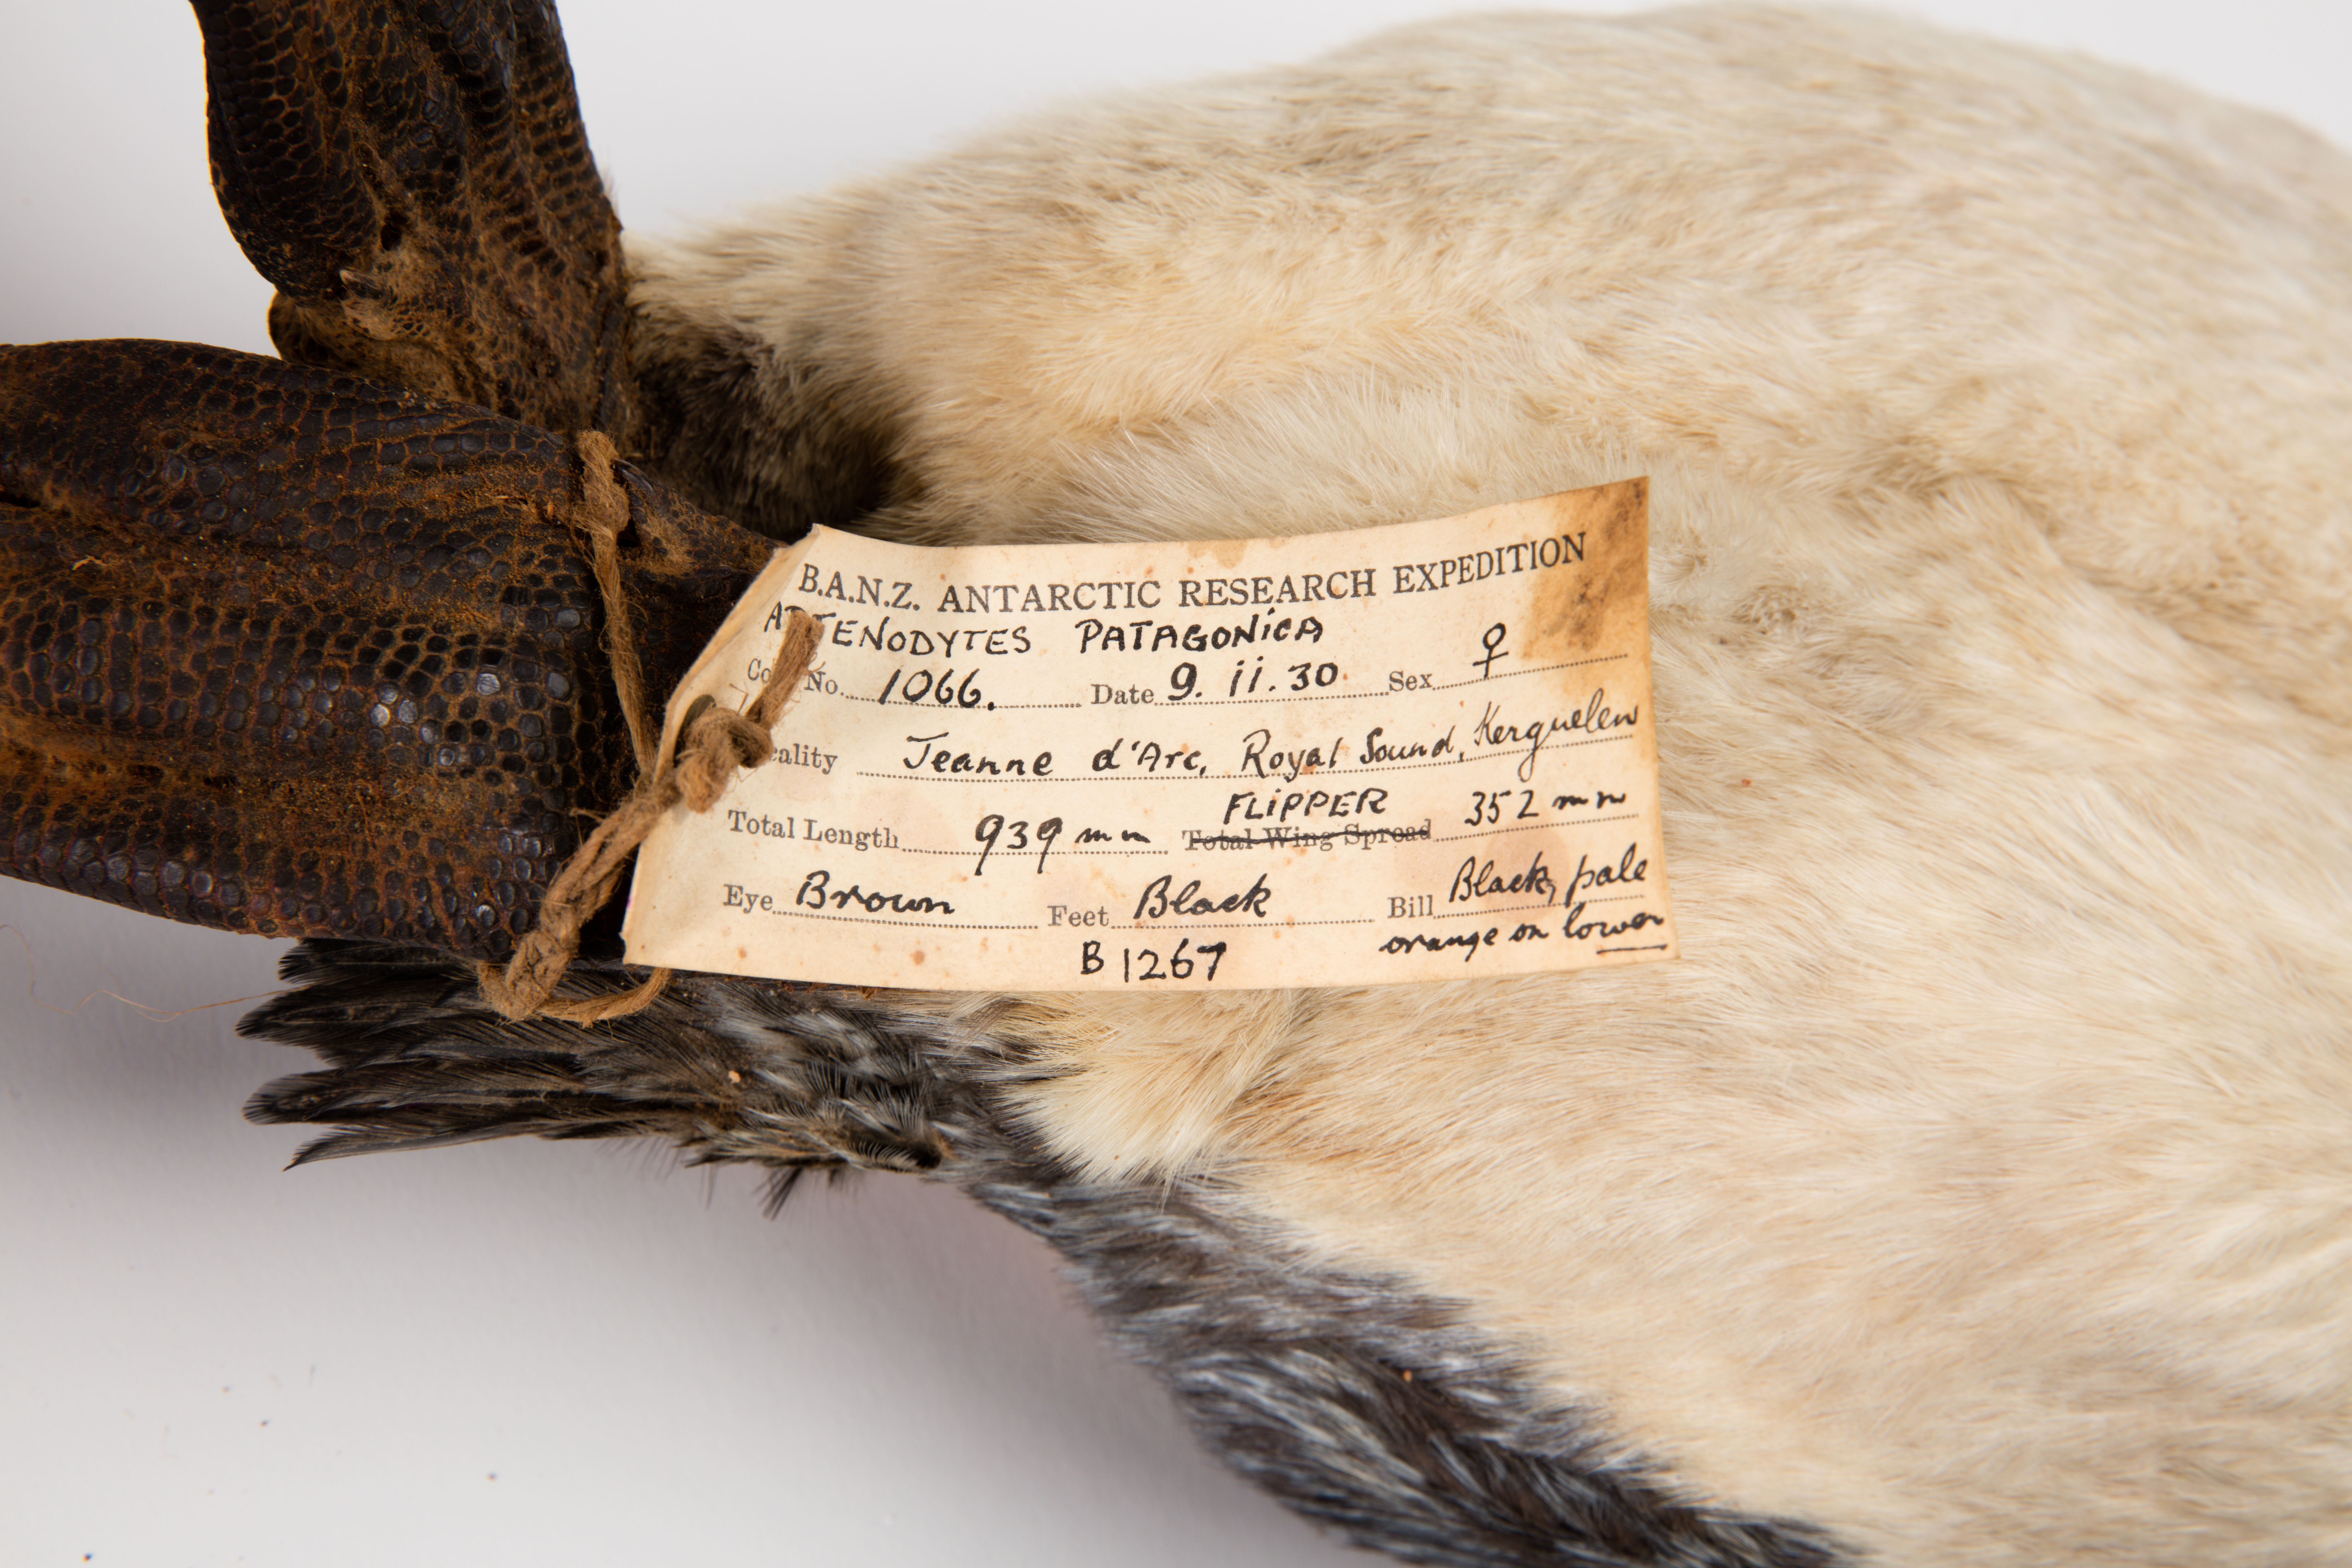 B.A.N.Z. ANTARCTIC RESEARCH EXPEDITION
APTENODYTES PATAGONICA
Coll. No. 1066. Date 9. ii. 30 Sex ♀
Locality Jeanne d'Arc, Royal Sound, Kerguelen
FLIPPER
Total Length 939 mm Total Wing Spread 352 mm
Eye Brown Feet Black Bill Black, pale
orange on lower
B 1267